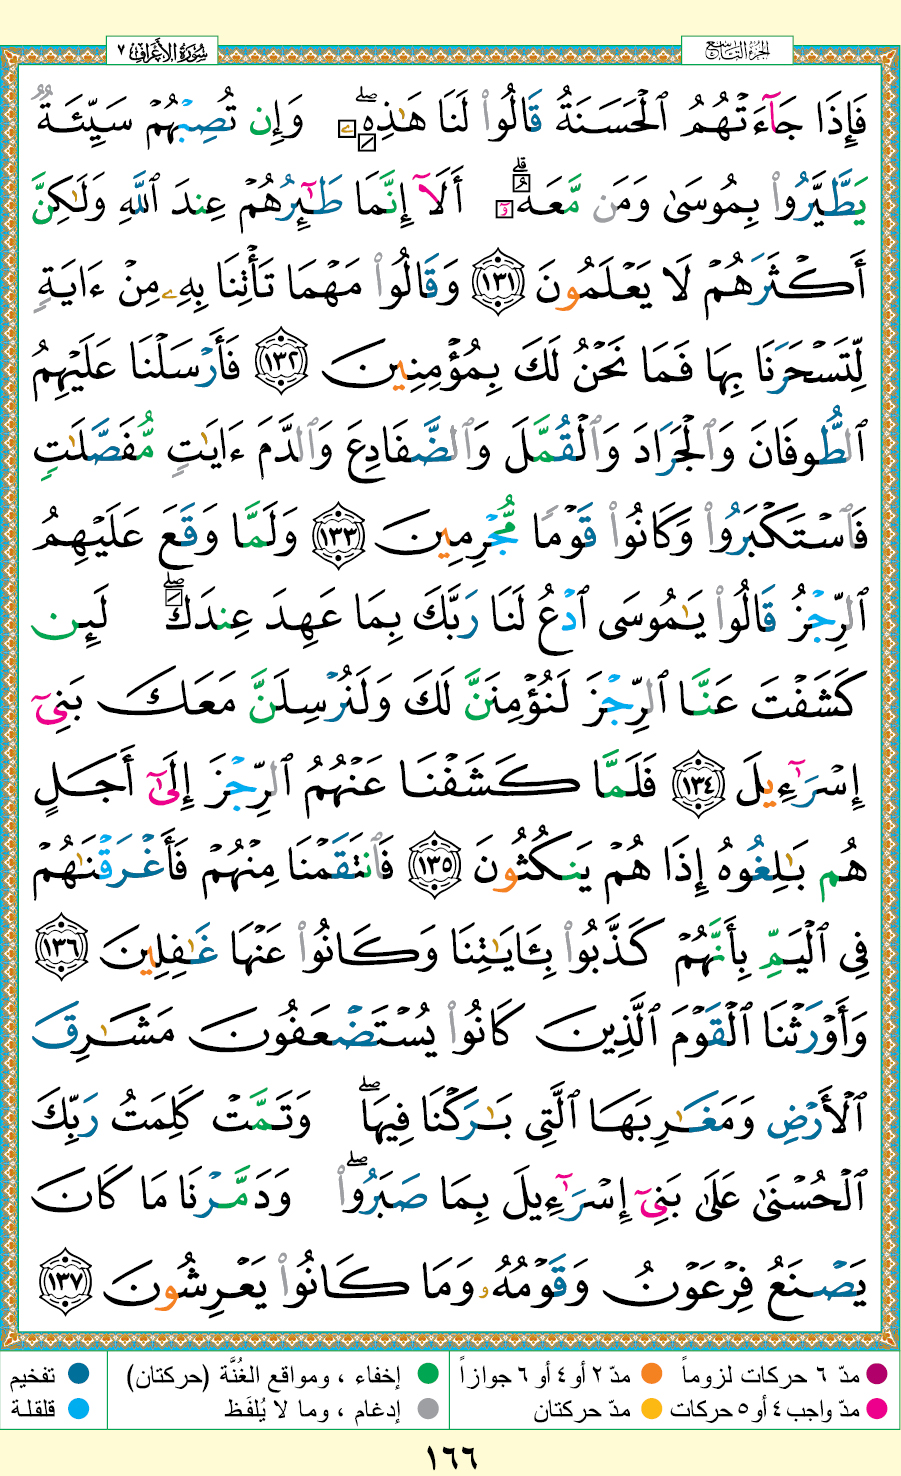 الجزء التاسع
سورة الأعراف ٧
فَإِذَا جَآءَتْهُمُ ٱلْحَسَنَةُ قَالُوا۟ لَنَا هَـٰذِهِۦ ۖ وَإِن تُصِبْهُمْ سَيِّئَةٌۭ
يَطَّيَّرُوا۟ بِمُوسَىٰ وَمَن مَّعَهُۥٓ ۗ أَلَآ إِنَّمَا طَـٰٓئِرُهُمْ عِندَ ٱللَّهِ وَلَـٰكِنَّ
أَكْثَرَهُمْ لَا يَعْلَمُونَ ﴿١٣١﴾ وَقَالُوا۟ مَهْمَا تَأْتِنَا بِهِۦ مِنْ ءَايَةٍۢ
لِّتَسْحَرَنَا بِهَا فَمَا نَحْنُ لَكَ بِمُؤْمِنِينَ ﴿١٣٢﴾ فَأَرْسَلْنَا عَلَيْهِمُ
ٱلطُّوفَانَ وَٱلْجَرَادَ وَٱلْقُمَّلَ وَٱلضَّفَادِعَ وَٱلدَّمَ ءَايَـٰتٍۢ مُّفَصَّلَـٰتٍۢ
فَٱسْتَكْبَرُوا۟ وَكَانُوا۟ قَوْمًۭا مُّجْرِمِينَ ﴿١٣٣﴾ وَلَمَّا وَقَعَ عَلَيْهِمُ
ٱلرِّجْزُ قَالُوا۟ يَـٰمُوسَى ٱدْعُ لَنَا رَبَّكَ بِمَا عَهِدَ عِندَكَ ۖ لَئِن
كَشَفْتَ عَنَّا ٱلرِّجْزَ لَنُؤْمِنَنَّ لَكَ وَلَنُرْسِلَنَّ مَعَكَ بَنِىٓ
إِسْرَٰٓءِيلَ ﴿١٣٤﴾ فَلَمَّا كَشَفْنَا عَنْهُمُ ٱلرِّجْزَ إِلَىٰٓ أَجَلٍ
هُم بَـٰلِغُوهُ إِذَا هُمْ يَنكُثُونَ ﴿١٣٥﴾ فَٱنتَقَمْنَا مِنْهُمْ فَأَغْرَقْنَـٰهُمْ
فِى ٱلْيَمِّ بِأَنَّهُمْ كَذَّبُوا۟ بِـَٔايَـٰتِنَا وَكَانُوا۟ عَنْهَا غَـٰفِلِينَ ﴿١٣٦﴾
وَأَوْرَثْنَا ٱلْقَوْمَ ٱلَّذِينَ كَانُوا۟ يُسْتَضْعَفُونَ مَشَـٰرِقَ
ٱلْأَرْضِ وَمَغَـٰرِبَهَا ٱلَّتِى بَـٰرَكْنَا فِيهَا ۖ وَتَمَّتْ كَلِمَتُ رَبِّكَ
ٱلْحُسْنَىٰ عَلَىٰ بَنِىٓ إِسْرَٰٓءِيلَ بِمَا صَبَرُوا۟ ۖ وَدَمَّرْنَا مَا كَانَ
يَصْنَعُ فِرْعَوْنُ وَقَوْمُهُۥ وَمَا كَانُوا۟ يَعْرِشُونَ ﴿١٣٧﴾
مدّ ٦ حركات لزوماً مدّ ٢ أو ٤ أو ٦ جوازاً إخفاء ، ومواقع الغُنَّة (حركتان) تفخيم
مدّ واجب ٤ أو ٥ حركات مدّ حركتان إدغام ، وما لا يُلفَظ قلقلة
١٦٦